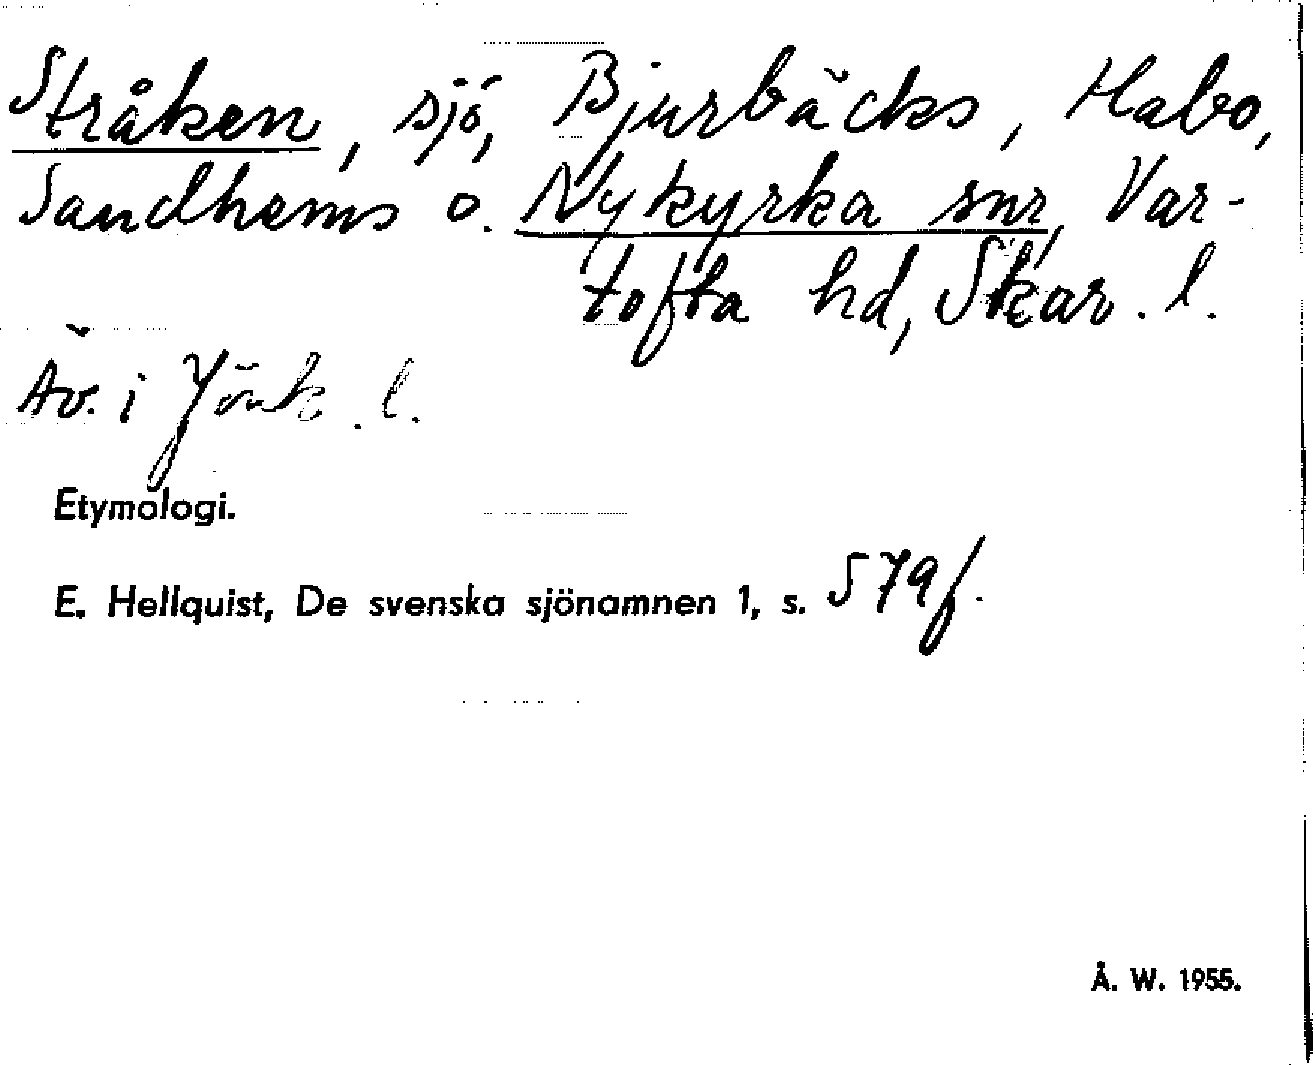 Stråken, sjö, Bjurbäcks, Habo,
Sandhems o. Nykyrka snr, Var-
tofta hd, Skar. l.
Äv. i Jönk. l.
Etymologi.
E. Hellquist, De svenska sjönamnen 1, s. 579 f.
Å. W. 1955.